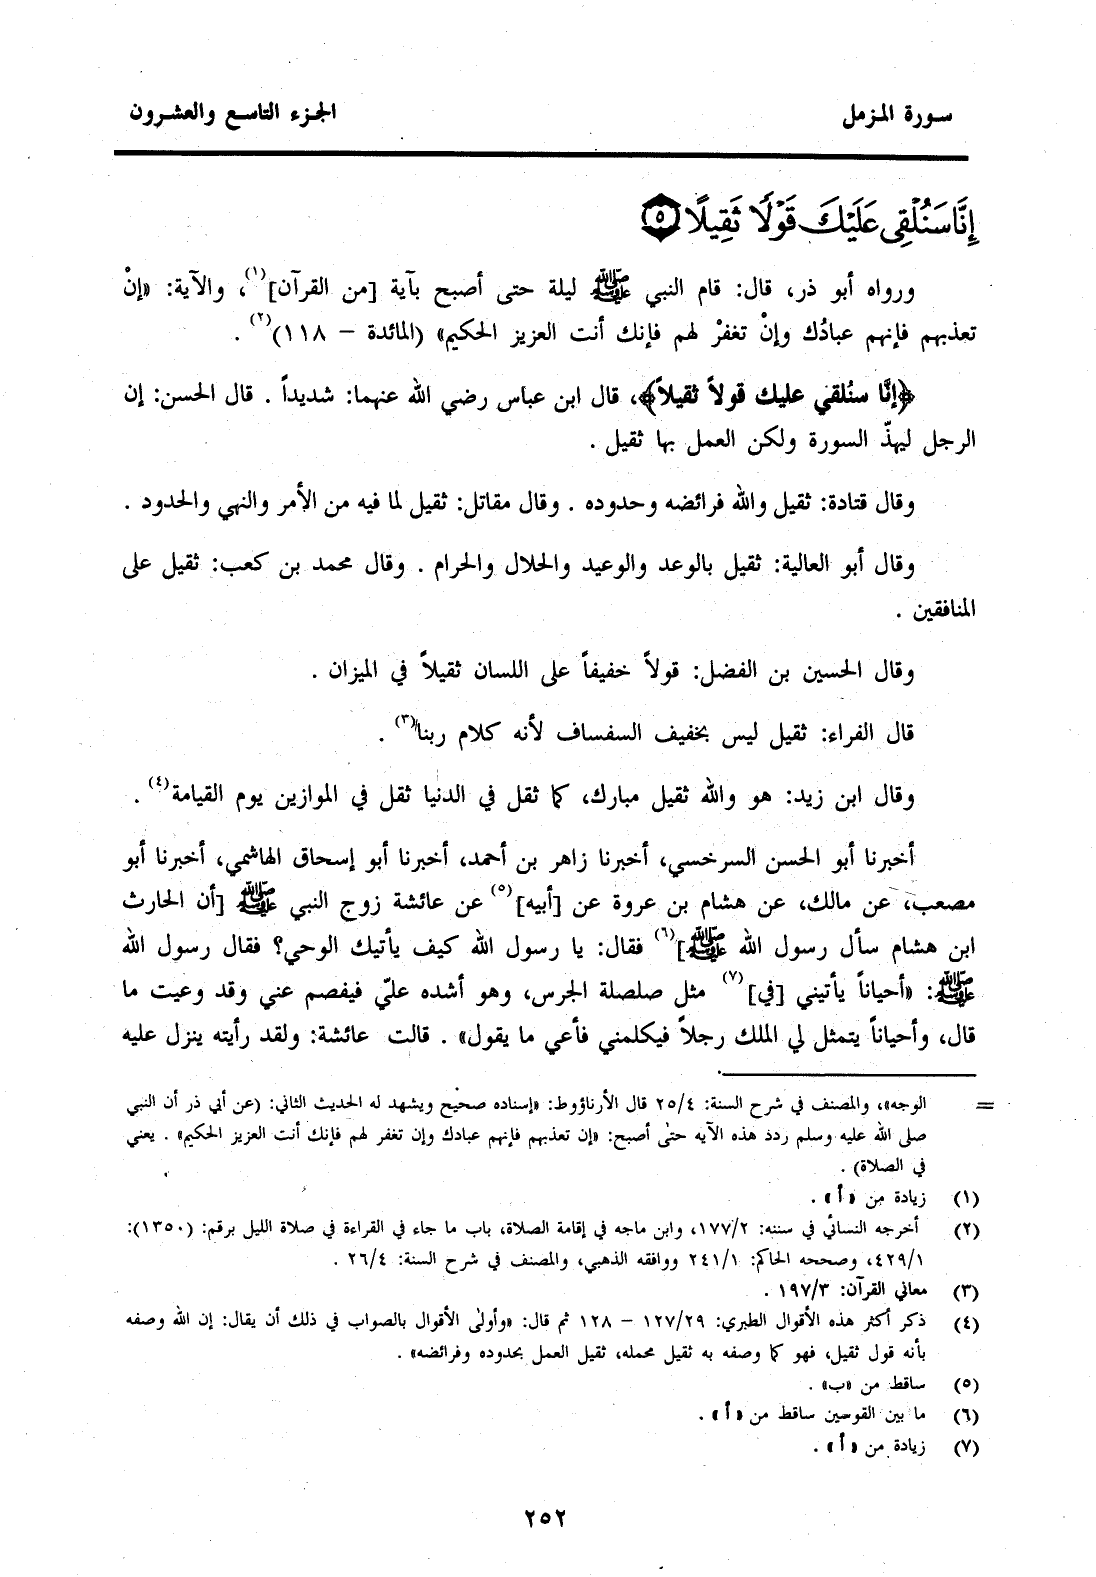 سورة المزمل
الجزء التاسع والعشرون
إِنَّا سَنُلْقِي عَلَيْكَ قَوْلًا ثَقِيلًا ٥
ورواه أبو ذر، قال: قام النبي ﷺ ليلة حتى أصبح بآية [من القرآن]⁽١⁾، والآية: «إنْ
تعذبهم فإنهم عبادُك وإنْ تغفرْ لهم فإنك أنت العزيز الحكيم» (المائدة – ١١٨)⁽٢⁾ .
﴿إنَّا سنُلقي عليك قولاً ثقيلاً﴾، قال ابن عباس رضي الله عنهما: شديداً . قال الحسن: إن
الرجل ليهذّ السورة ولكن العمل بها ثقيل .
وقال قتادة: ثقيل والله فرائضه وحدوده . وقال مقاتل: ثقيل لما فيه من الأمر والنهي والحدود .
وقال أبو العالية: ثقيل بالوعد والوعيد والحلال والحرام . وقال محمد بن كعب: ثقيل على
المنافقين .
وقال الحسين بن الفضل: قولاً خفيفاً على اللسان ثقيلاً في الميزان .
قال الفراء: ثقيل ليس بخفيف السفساف لأنه كلام ربنا⁽٣⁾ .
وقال ابن زيد: هو والله ثقيل مبارك، كما ثقل في الدنيا ثقل في الموازين يوم القيامة⁽٤⁾ .
أخبرنا أبو الحسن السرخسي، أخبرنا زاهر بن أحمد، أخبرنا أبو إسحاق الهاشمي، أخبرنا أبو
مصعب، عن مالك، عن هشام بن عروة عن [أبيه]⁽٥⁾ عن عائشة زوج النبي ﷺ [أن الحارث
ابن هشام سأل رسول الله ﷺ]⁽٦⁾ فقال: يا رسول الله كيف يأتيك الوحي؟ فقال رسول الله
ﷺ: «أحياناً يأتيني [في]⁽٧⁾ مثل صلصلة الجرس، وهو أشده عليّ فيفصم عني وقد وعيت ما
قال، وأحياناً يتمثل لي الملك رجلاً فيكلمني فأعي ما يقول» . قالت عائشة: ولقد رأيته ينزل عليه
= الوجه»، والمصنف في شرح السنة: ٢٥/٤ قال الأرناؤوط: «إسناده صحيح ويشهد له الحديث الثاني: (عن أبي ذر أن النبي
صلى الله عليه وسلم ردد هذه الآيه حتى أصبح: «إن تعذبهم فإنهم عبادك وإن تغفر لهم فإنك أنت العزيز الحكيم» . يعني
في الصلاة) .
(١) زيادة من «أ» .
(٢) أخرجه النسائي في سننه: ١٧٧/٢، وابن ماجه في إقامة الصلاة، باب ما جاء في القراءة في صلاة الليل برقم: (١٣٥٠):
٤٢٩/١، وصححه الحاكم: ٢٤١/١ ووافقه الذهبي، والمصنف في شرح السنة: ٢٦/٤ .
(٣) معاني القرآن: ١٩٧/٣ .
(٤) ذكر أكثر هذه الأقوال الطبري: ١٢٧/٢٩ – ١٢٨ ثم قال: «وأولى الأقوال بالصواب في ذلك أن يقال: إن الله وصفه
بأنه قول ثقيل، فهو كما وصفه به ثقيل محمله، ثقيل العمل بحدوده وفرائضه» .
(٥) ساقط من «ب» .
(٦) ما بين القوسين ساقط من «أ» .
(٧) زيادة من «أ» .
٢٥٢